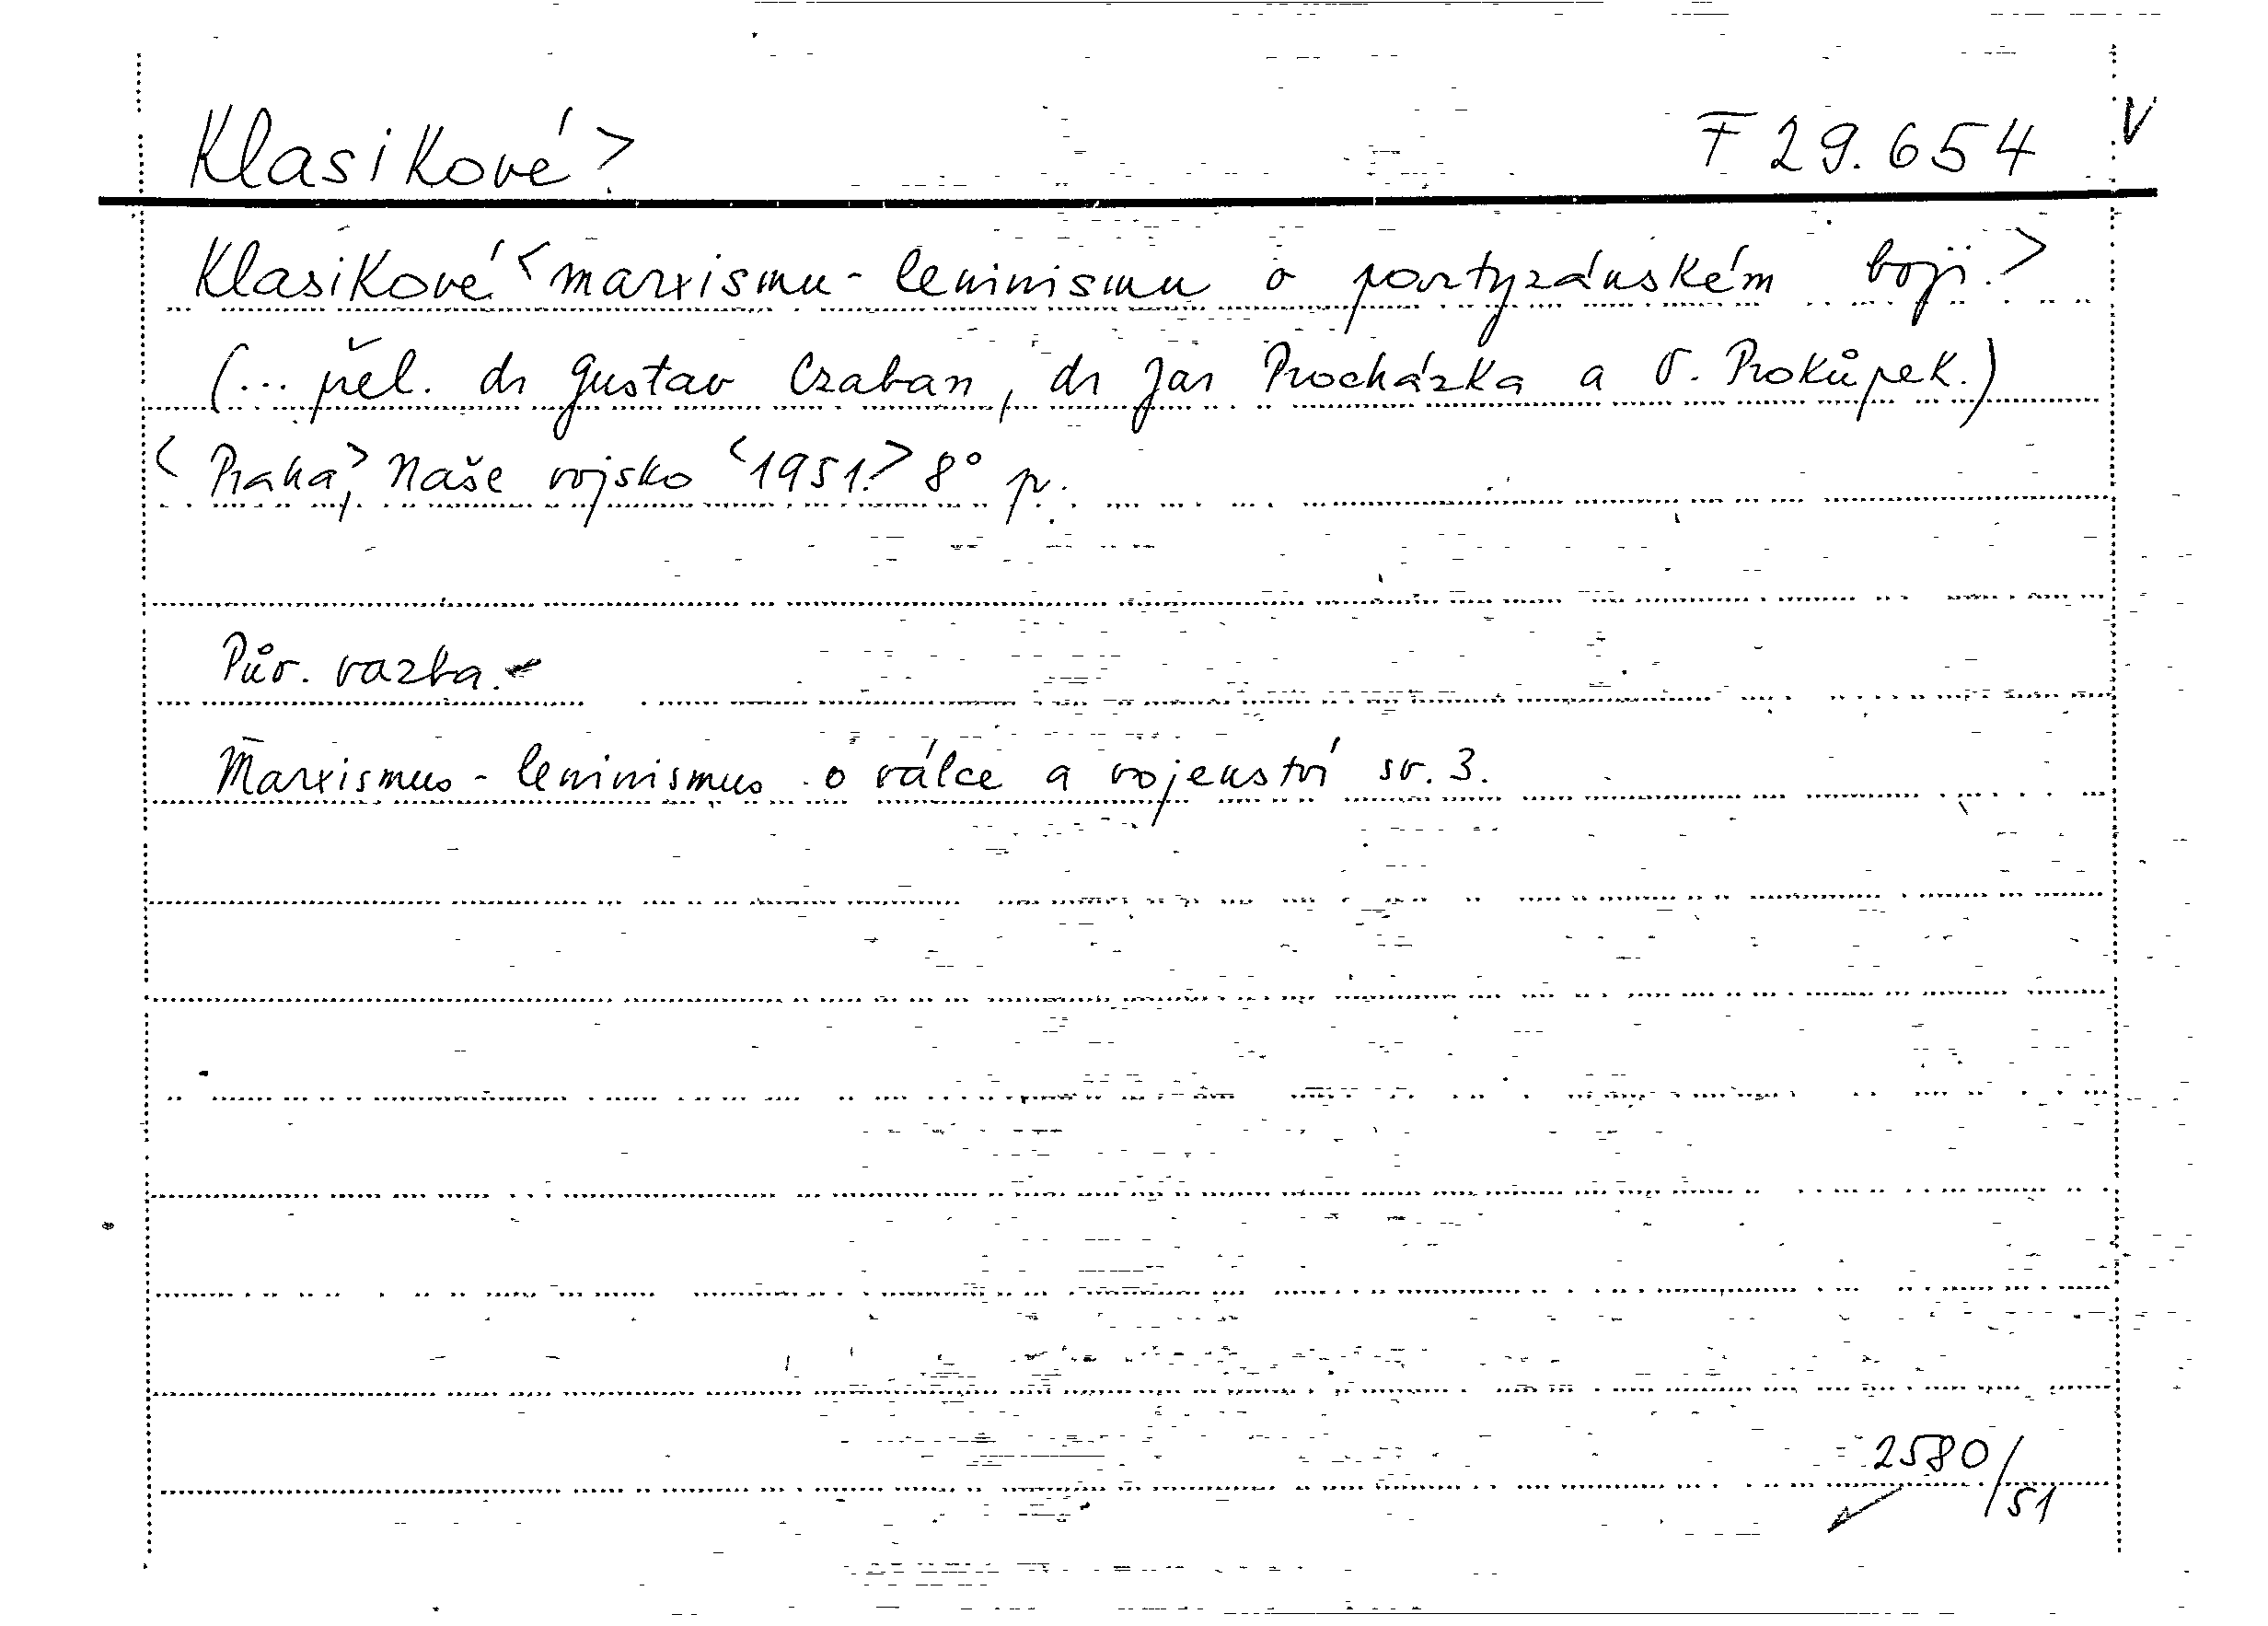 Klasikové> F 29.654 V
Klasikové <marxismu-leninismu o partyzánském boji.>
(... přel. dr Gustav Czaban, dr Jar Procházka a V. Prokůpek.)
<Praha>, Naše vojsko <1951.> 8° p.
Pův. vazba.
Marxismus-leninismus o válce a vojenství sv. 3.
2580/51